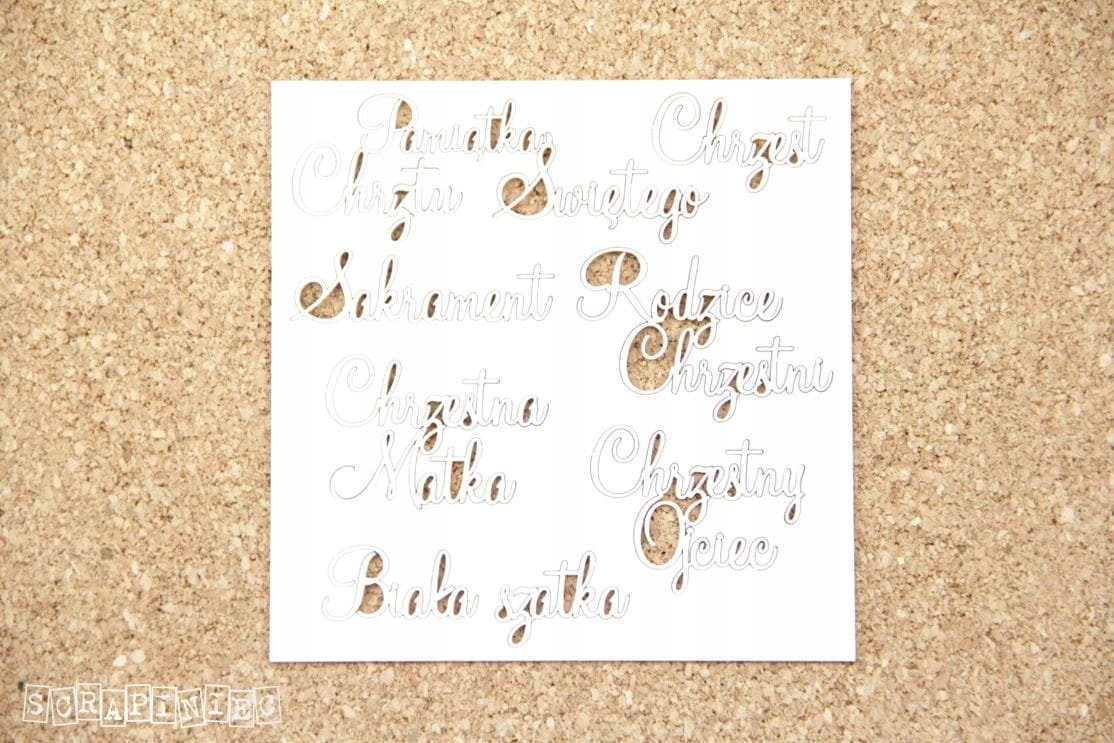 Pamiątka
Chrztu Świętego
Chrzest
Sakrament
Rodzice
Chrzestni
Chrzestna
Matka
Chrzestny
Ojciec
Biała szatka
SCRAPINIEC